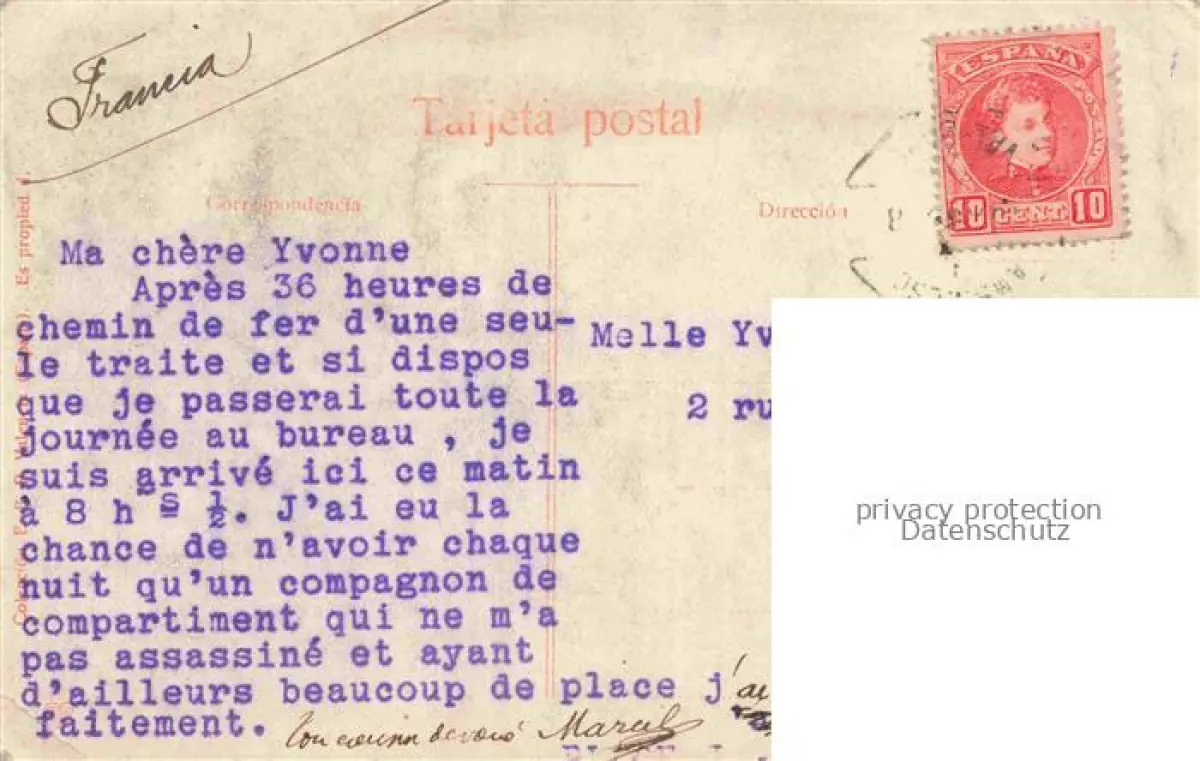 Francia
Tarjeta postal
Correspondencia
Dirección
ESPAÑA
10 CENT. 10
Es propied d.
Ma chère Yvonne
Après 36 heures de
chemin de fer d'une seu-
le traite et si dispos
que je passerai toute la
journée au bureau , je
suis arrivé ici ce matin
à 8 h s ½. J'ai eu la
chance de n'avoir chaque
nuit qu'un compagnon de
compartiment qui ne m'a
pas assassiné et ayant
d'ailleurs beaucoup de place j'ai
faitement.
Ton cousin dévoué Marcel
Melle Yv
2 ru
privacy protection
Datenschutz